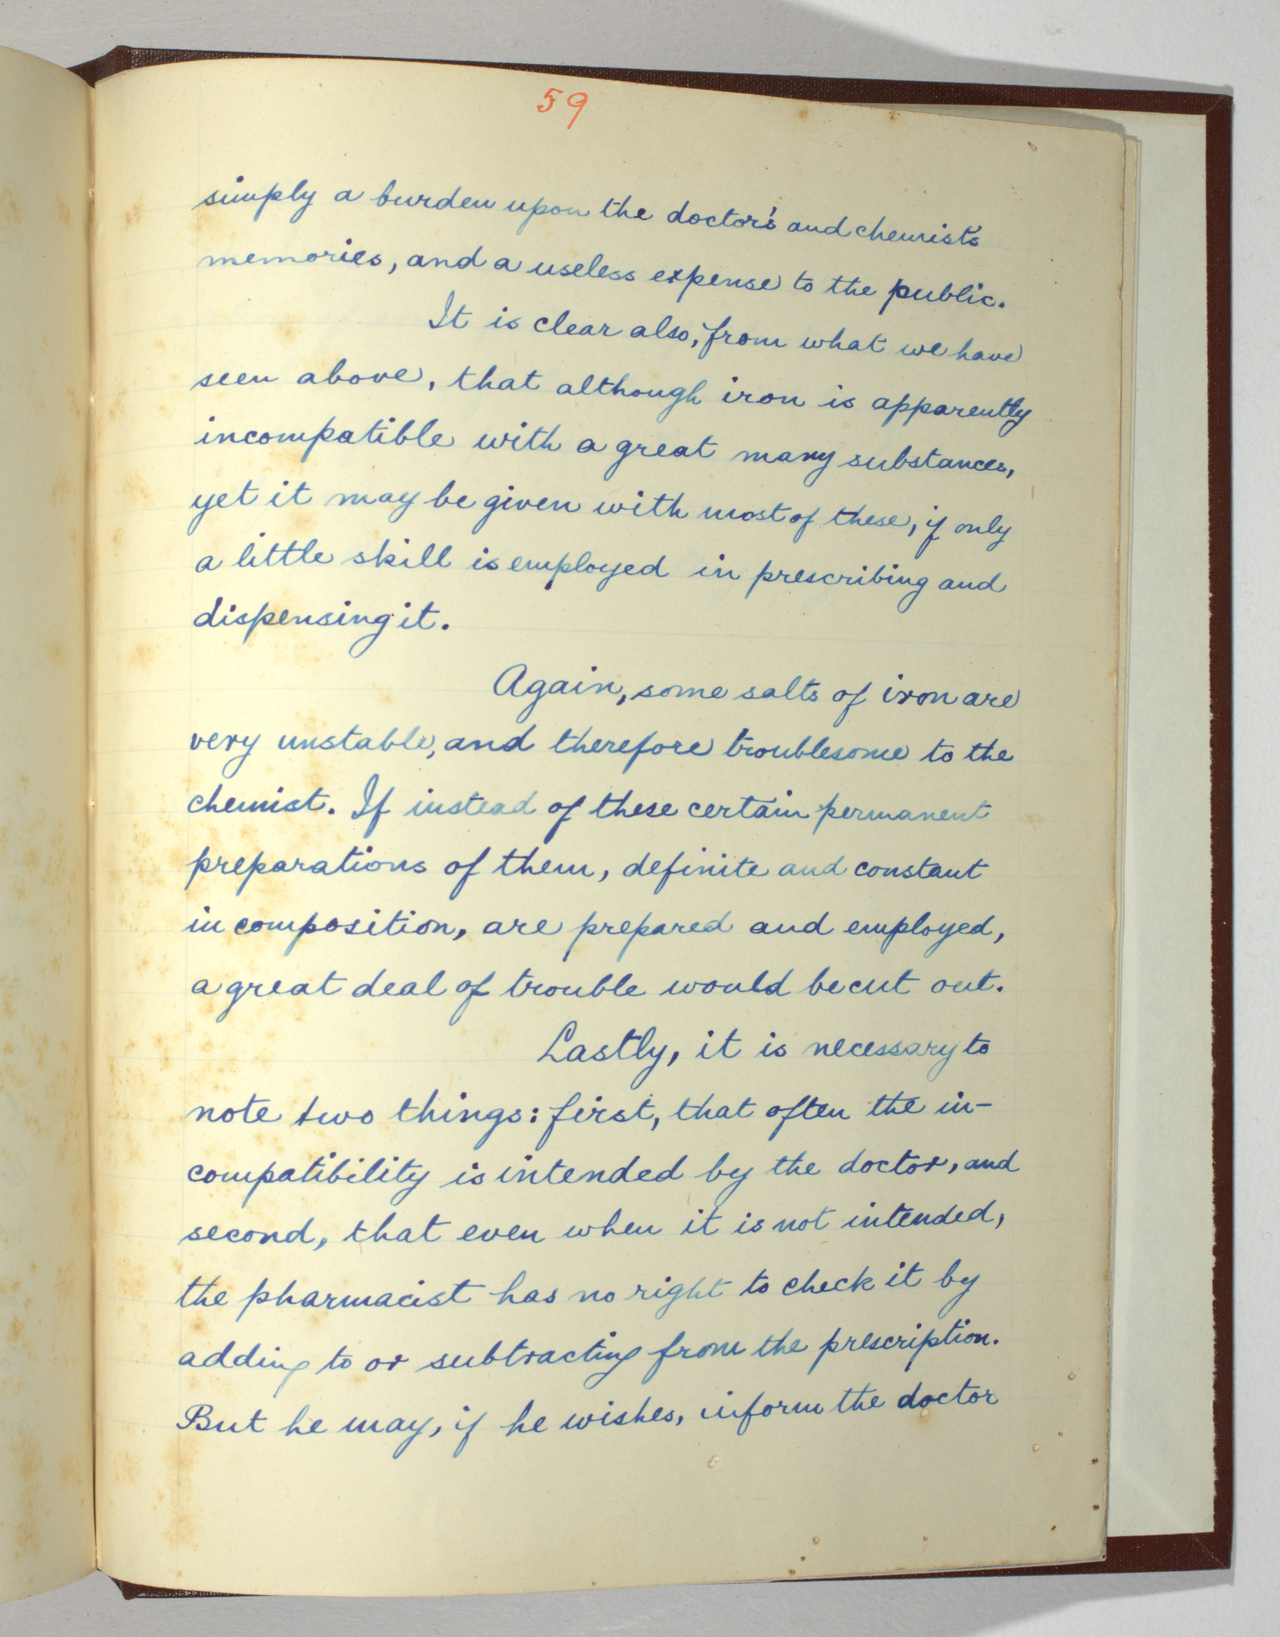 59
simply a burden upon the doctor's and chemist's
memories, and a useless expense to the public.
It is clear also, from what we have
seen above, that although iron is apparently
incompatible with a great many substances,
yet it may be given with most of these, if only
a little skill is employed in prescribing and
dispensing it.
Again, some salts of iron are
very unstable, and therefore troublesome to the
chemist. If instead of these certain permanent
preparations of them, definite and constant
in composition, are prepared and employed,
a great deal of trouble would be cut out.
Lastly, it is necessary to
note two things: first, that often the in-
compatibility is intended by the doctor, and
second, that even when it is not intended,
the pharmacist has no right to check it by
adding to or subtracting from the prescription.
But he may, if he wishes, inform the doctor